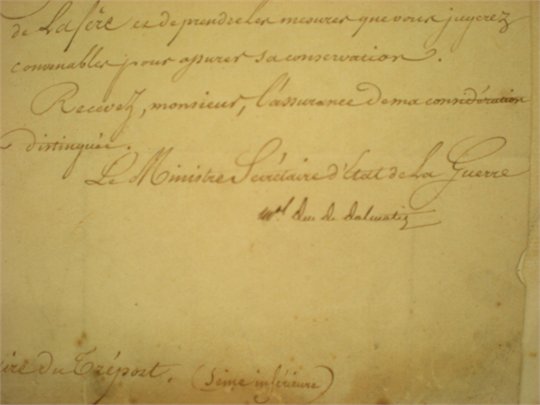 de La fère et de prendre les mesures que vous jugerez
convenables pour assurer sa conservation.
Recevez, monsieur, l'assurance de ma considération
distinguée.
Le Ministre Secrétaire d'État de la Guerre
Mal Duc de Dalmatie
ire du Tréport. (Seine inférieure)